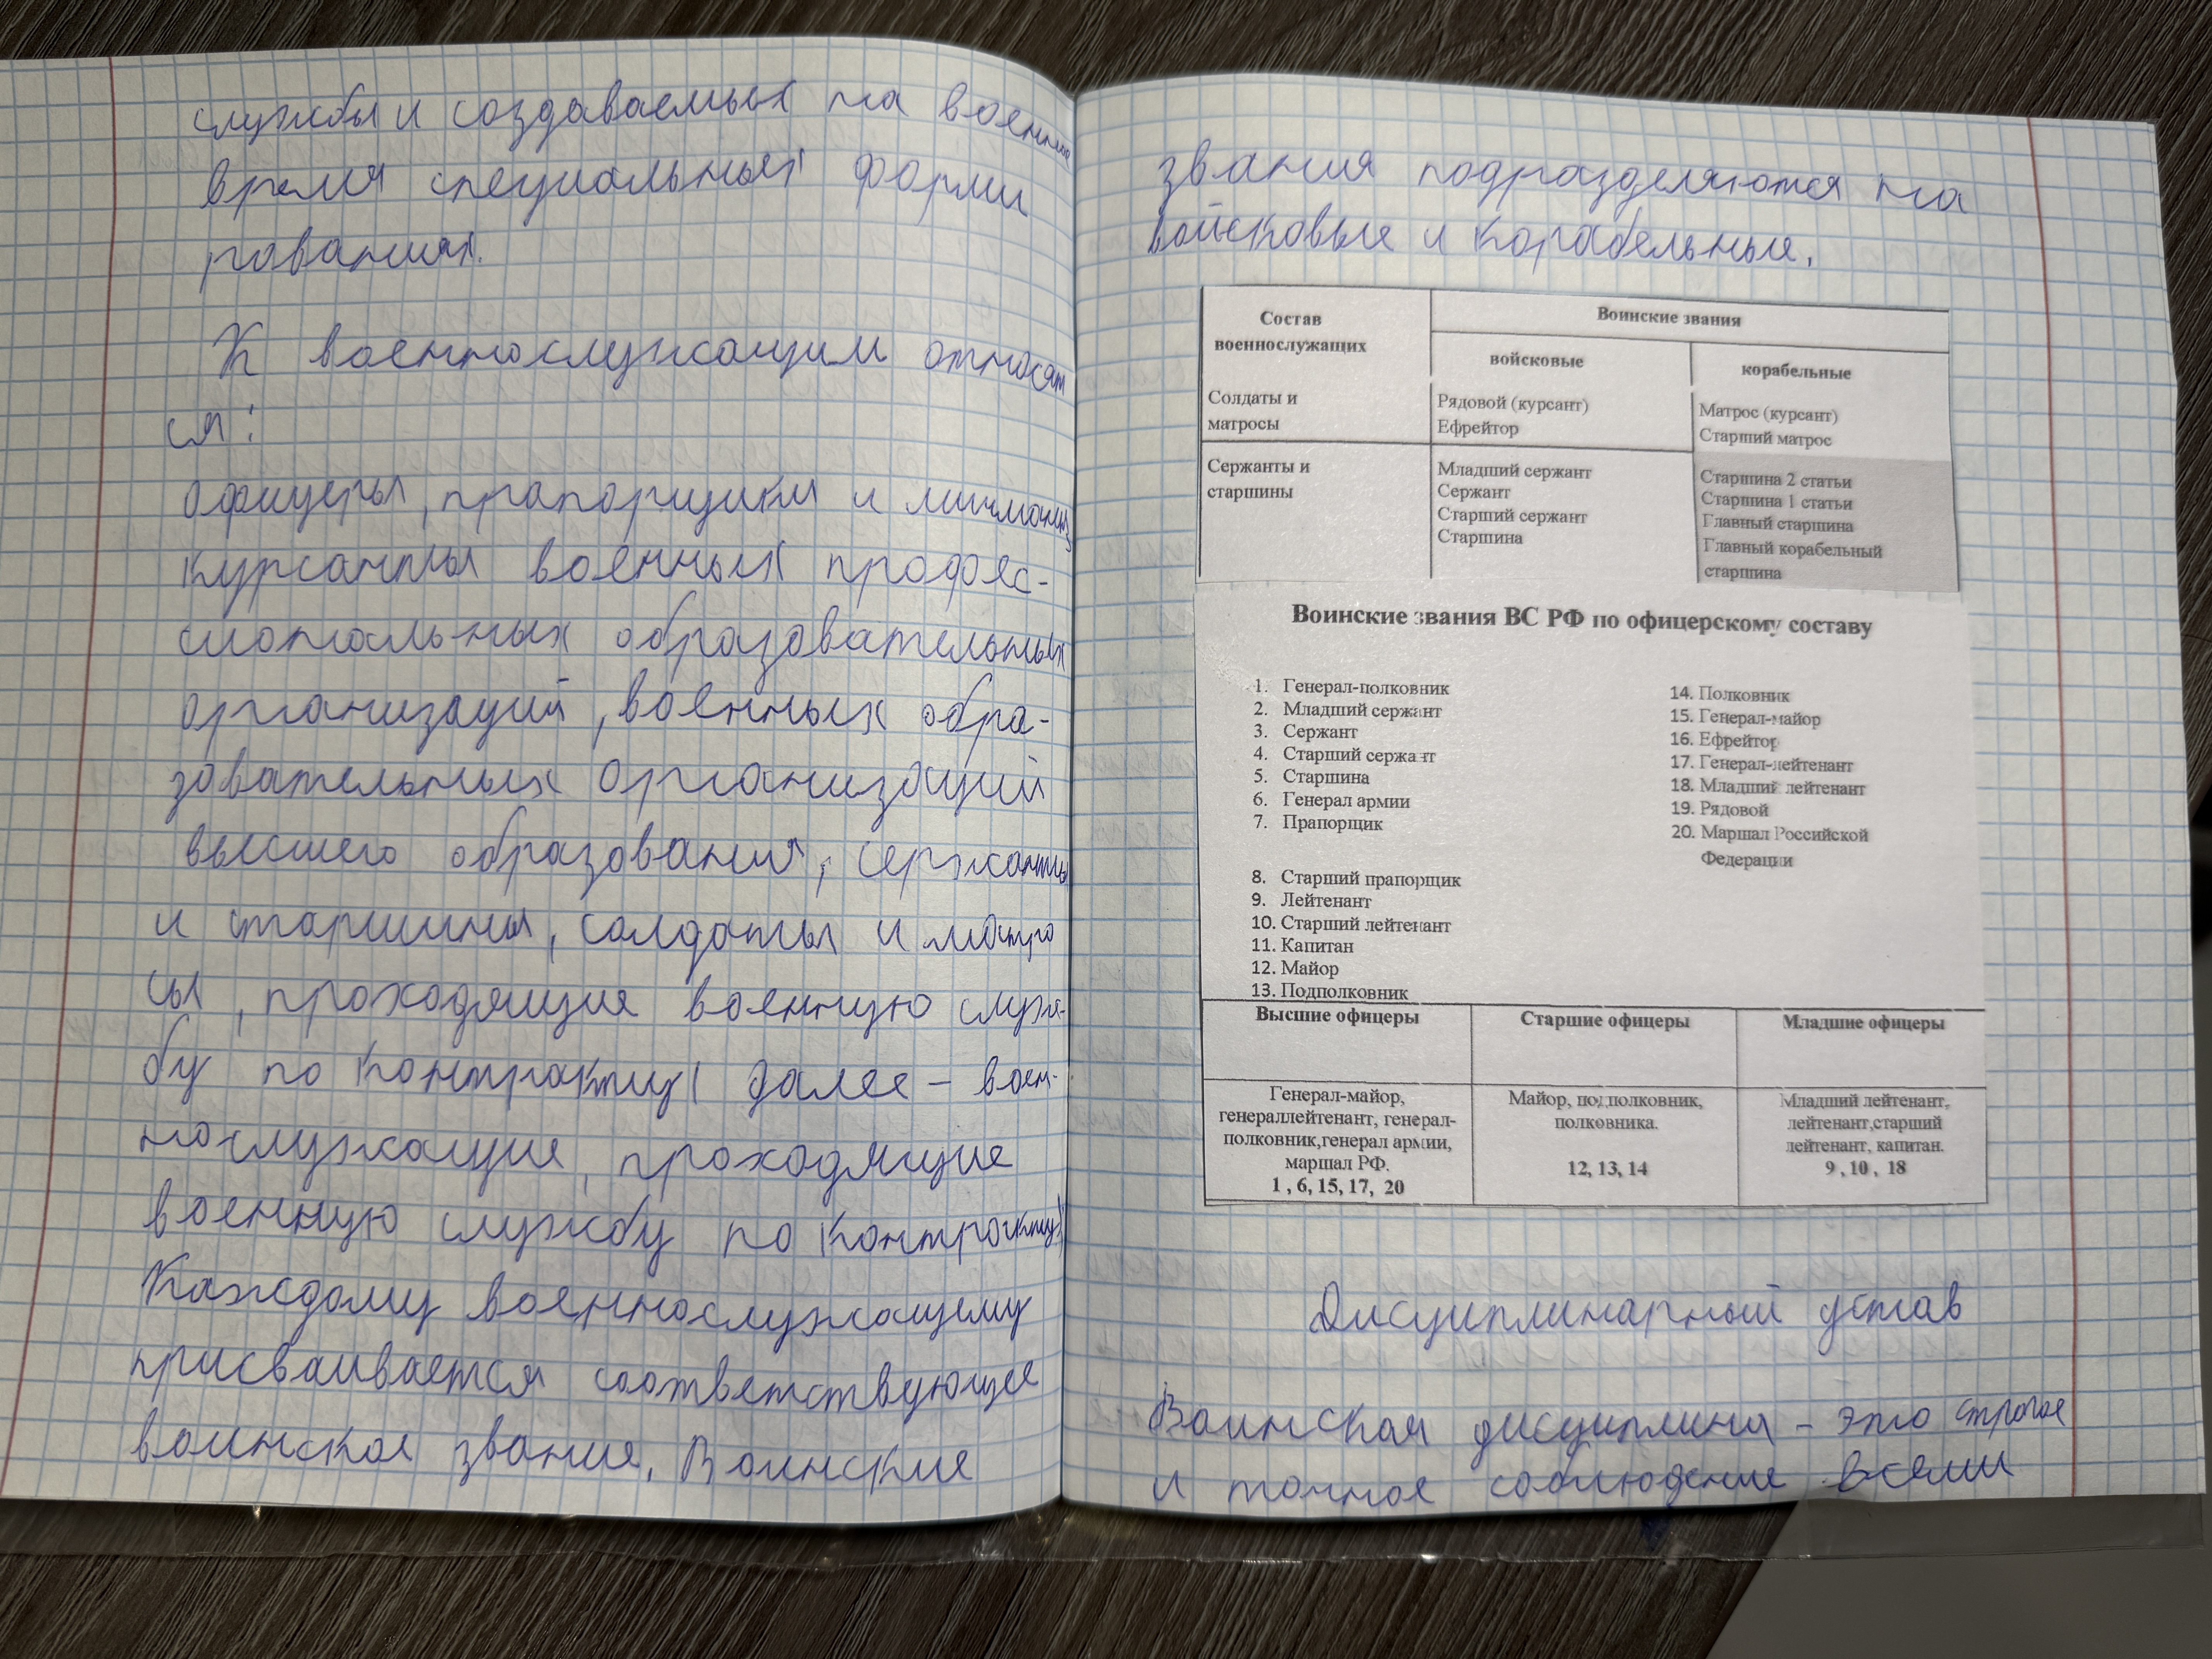 службы и создаваемых на военное
время специальных форми
рованиях.
К военнослужащим относят
ся:
офицеры, прапорщики и мичманы,
курсанты военных профес-
сиональных образовательных
организаций, военных обра-
зовательных организаций
высшего образования, сержанты
и старшины, солдаты и матро
сы, проходящие военную служ-
бу по контракту( далее – воен-
нослужащие, проходящие
военную службу по контракту)
Каждому военнослужащему
присваивается соответствующее
воинское звание. Воинские
звания подразделяются на
войсковые и корабельные.
Состав
военнослужащих
Воинские звания
войсковые
корабельные
Солдаты и
матросы
Рядовой (курсант)
Ефрейтор
Матрос (курсант)
Старший матрос
Сержанты и
старшины
Младший сержант
Сержант
Старший сержант
Старшина
Старшина 2 статьи
Старшина 1 статьи
Главный старшина
Главный корабельный
старшина
Воинские звания ВС РФ по офицерскому составу
1. Генерал-полковник
2. Младший сержант
3. Сержант
4. Старший сержант
5. Старшина
6. Генерал армии
7. Прапорщик
8. Старший прапорщик
9. Лейтенант
10. Старший лейтенант
11. Капитан
12. Майор
13. Подполковник
14. Полковник
15. Генерал-майор
16. Ефрейтор
17. Генерал-лейтенант
18. Младший лейтенант
19. Рядовой
20. Маршал Российской
Федерации
Высшие офицеры
Старшие офицеры
Младшие офицеры
Генерал-майор,
генераллейтенант, генерал-
полковник,генерал армии,
маршал РФ.
1 , 6, 15, 17, 20
Майор, подполковник,
полковника.
12, 13, 14
Младший лейтенант,
лейтенант,старший
лейтенант, капитан.
9 , 10 , 18
Дисциплинарный устав
Воинская дисциплина – это строгое
и точное соблюдение всеми